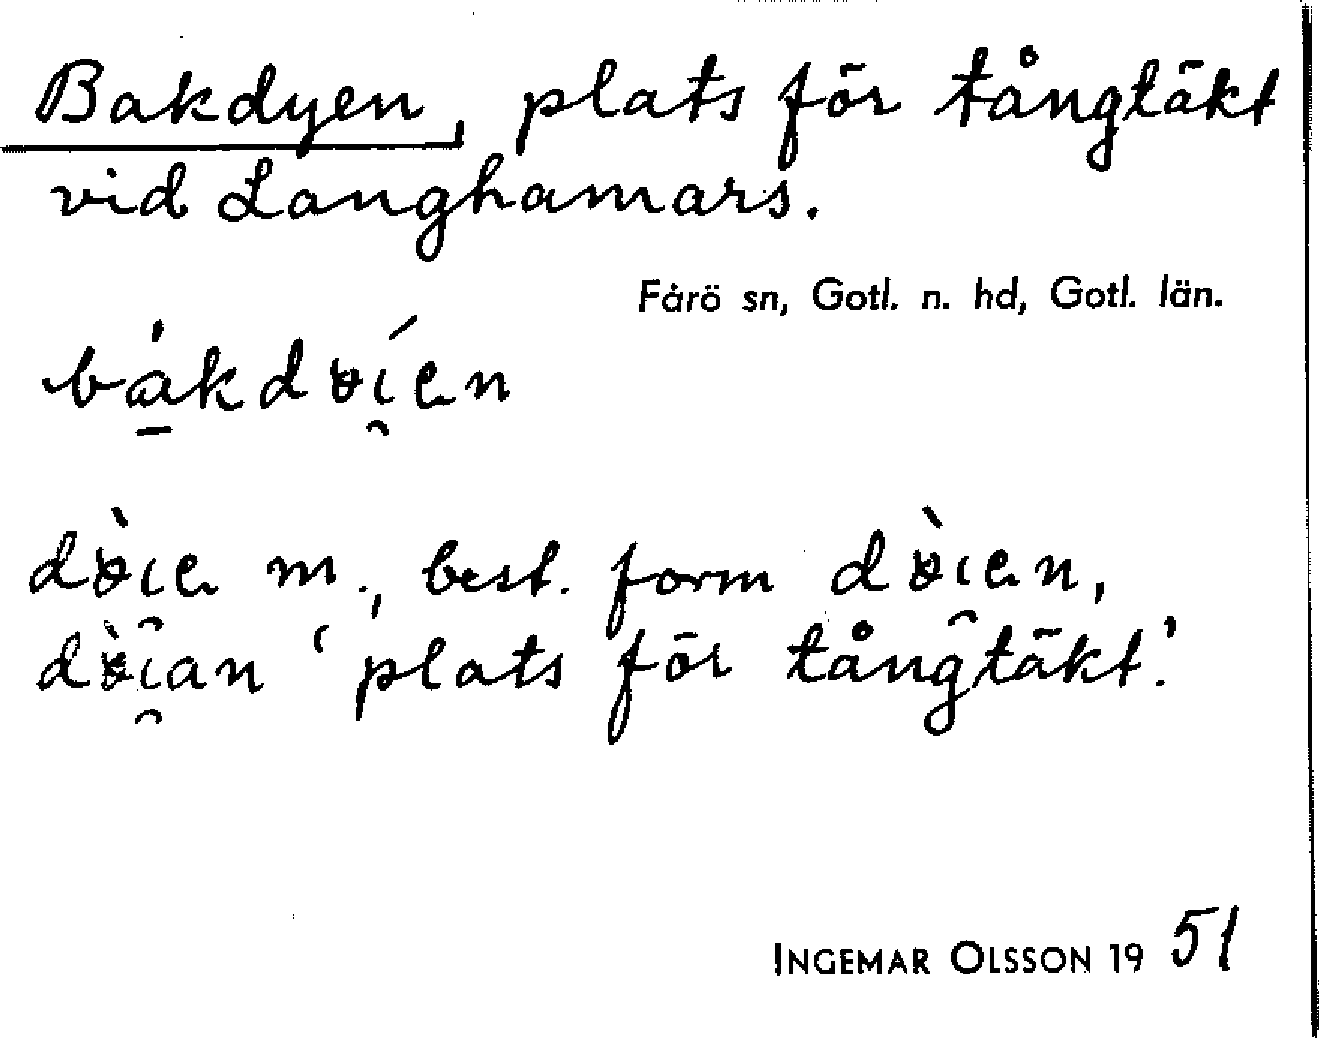 Bakdyen, plats för tångtäkt
vid Langhamars.
Fårö sn, Gotl. n. hd, Gotl. län.
bákdɤı̯́en
dɤ̀ı̯e m., best. form dɤ̀ı̯en,
dɤ̀ı̯an ‘plats för tångtäkt’.
INGEMAR OLSSON 19 51